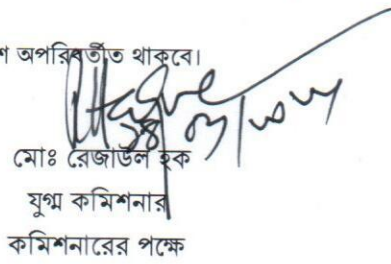 অপরিবর্তীত থাকবে।
মোঃ রেজাউল হক
যুগ্ম কমিশনার
কমিশনারের পক্ষে